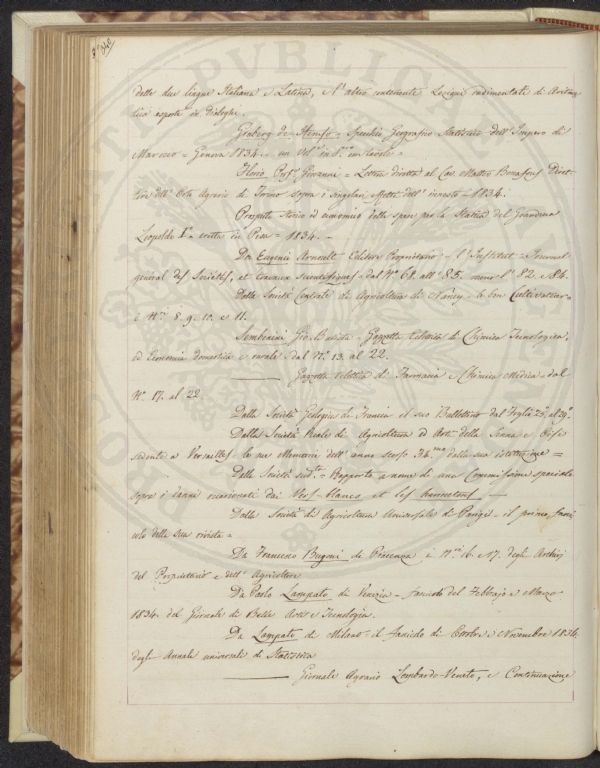 delle due lingue Italiana e Latina, e l'altro contenente Lezioni rudimentali di Aritme
tica esposte in Dialoghi.
Graberg de Hemso = Specchio Geografico Statistico dell'Impero di
Marocco - Genova 1834 - un Vol.e in 8.vo con tavole =
Prof.e Giovanni = Lettera diretta al Cav. Matteo Bonafous Diret
tore dell'Orto Agrario di Torino sopra i singolari effetti dell'innesto - 1834.
Prospetto Storico ed economico delle spese per la Statua del Granduca
Leopoldo I.o eretta in Pisa = 1834. -
Da Eugenio Arnoult Editore Proprietario - L'Institut = Journal
general des Sociétés, et travaux scientifiques - dal N.o 68. all'85. meno l'82. e 84.
Dalla Società Centrale di Agricoltura di Nancy - le bon Cultivateur -
i N.ri 8. 9. 10. e 11.
Sembenini Gio. Battista - Gazzetta Eclettica di Chimica Tecnologica,
ed Economia domestica e rurale dal N.o 13. al 22.
Gazzetta eclettica di Farmacia e Chimica Medica - dal
N.o 17. al 22
Dalla Società Geologica di Francia il suo Bullettino dal Foglio 25.o al 29.o
Dalla Società Reale di Agricoltura ed Arti della Senna e Oise
sedente a Versailles - le sue Memorie dell'anno scorso 34.mo dalla sua istituzione =
Dalla Società sud.ta = Rapporto a nome di una Commissione speciale
sopra i danni occasionati dai Vers-blancs et les hannetons -
Dalla Società di Agricoltura Universale di Parigi - il primo fasci
colo della sua rivista =
Da Francesco di Piacenza i N.ri 16. e 17. degli Archivj
del Proprietario e dell'Agricoltore
Da Paolo Lampato di Venezia - fascicolo del Febbrajo e Marzo
1834. del Giornale di Belle Arti e Tecnologia.
Da Lampato di Milano il fascicolo di Ottobre e Novembre 1834.
degli Annali universali di Statistica
Giornale Agrario Lombardo-Veneto, e Continuazione